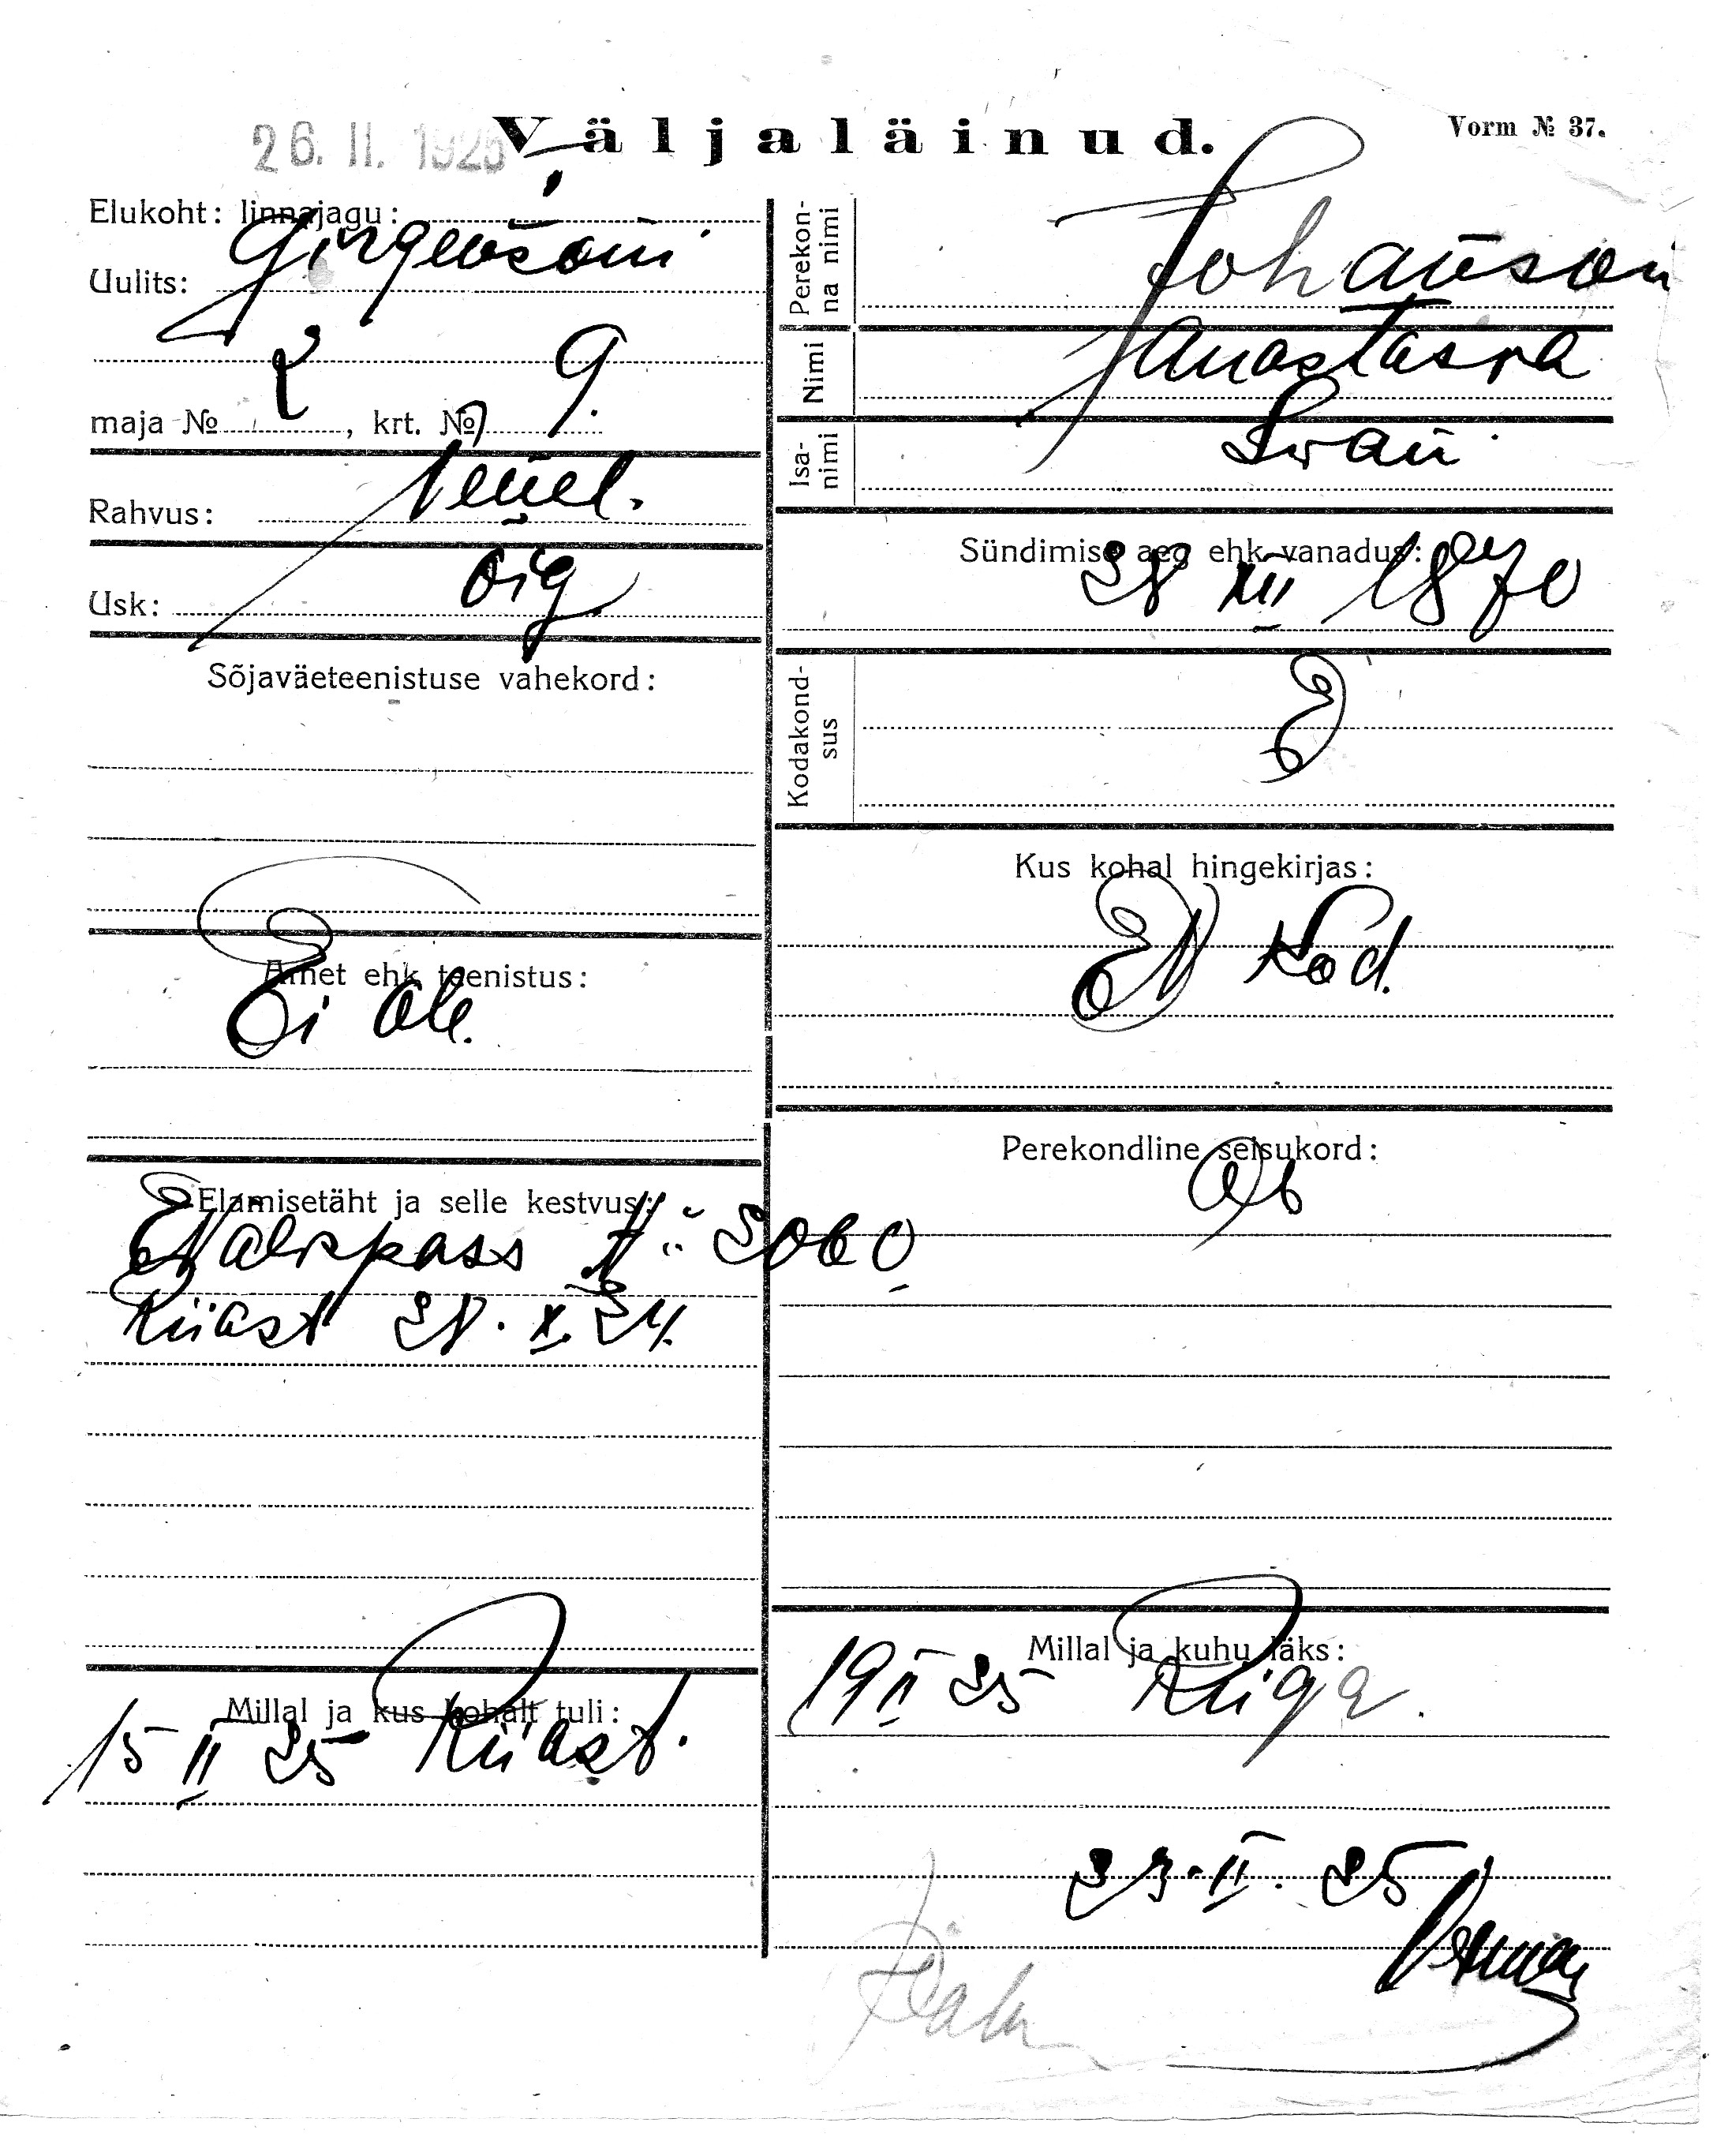 26. II. 1925
Väljaläinud.
Vorm № 37.
Elukoht: linnajagu:
Uulits: Girgensoni
maja № 2, krt. № 9.
Rahvus: Venel.
Usk: õig
Sõjaväeteenistuse vahekord:
Amet ehk teenistus:
Ei ole.
Elamisetäht ja selle kestvus:
EV alispass №
Riiast 28. X. 24.
Millal ja kus kohalt tuli:
15 II 25 Riiast.
Perekonna nimi
Johanson
Nimi
Anastasia
Isanimi
Ivan
Sündimise aeg ehk vanadus:
28 XII 1870
Kodakondsus
E
Kus kohal hingekirjas:
EV kod.
Perekondline seisukord:
Ab
Millal ja kuhu läks:
19 II 25 Riiga.
23. II. 25